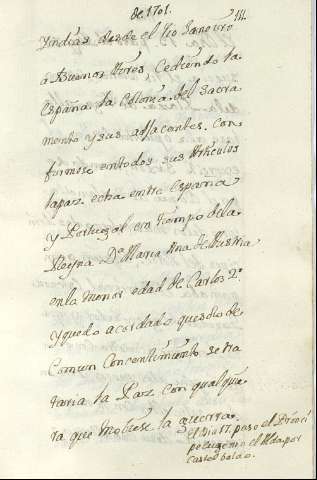 de 1701. 111.
Yndias desde el Rio Janeyro
a Buenos Ayres. Cediendo la
España la Colonia del Sacra
mento y sus adjacentes. con
firmose en todos sus Articulos
la paz echa entre España
y Portugal en tiempo de la
Reyna Da. Maria Ana de Austria
en la menor edad de Carlos 2o.
y quedo acordado que solo de
Comun Concentimiento se tra
taria la Paz con qualquie
ra que mobiese la guerra.
el Dia 17. paso el Princi
pe eugenio el Alda por
Castelbaldo.